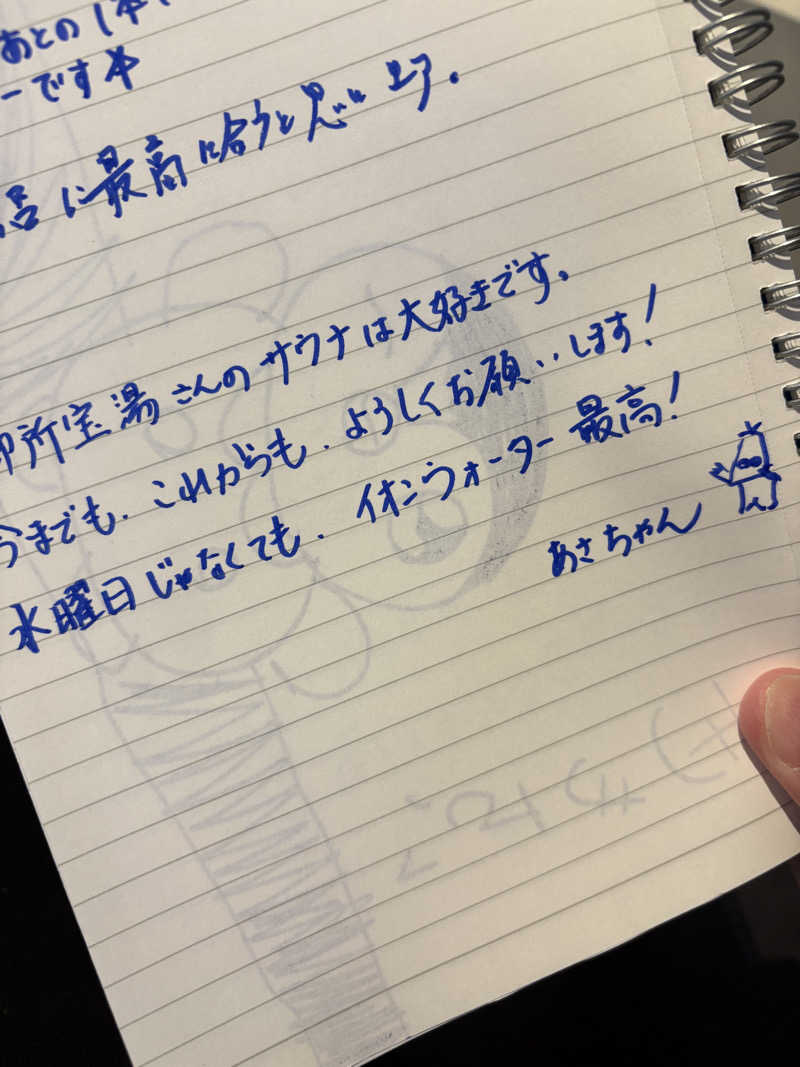 あとの1本
ーです
に最高に合うと思います。
御所宝湯さんのサウナは大好きです。
今までも、これからも、よろしくお願いします!
水曜日じゃなくても、イオンウォーター最高!
あさちゃん